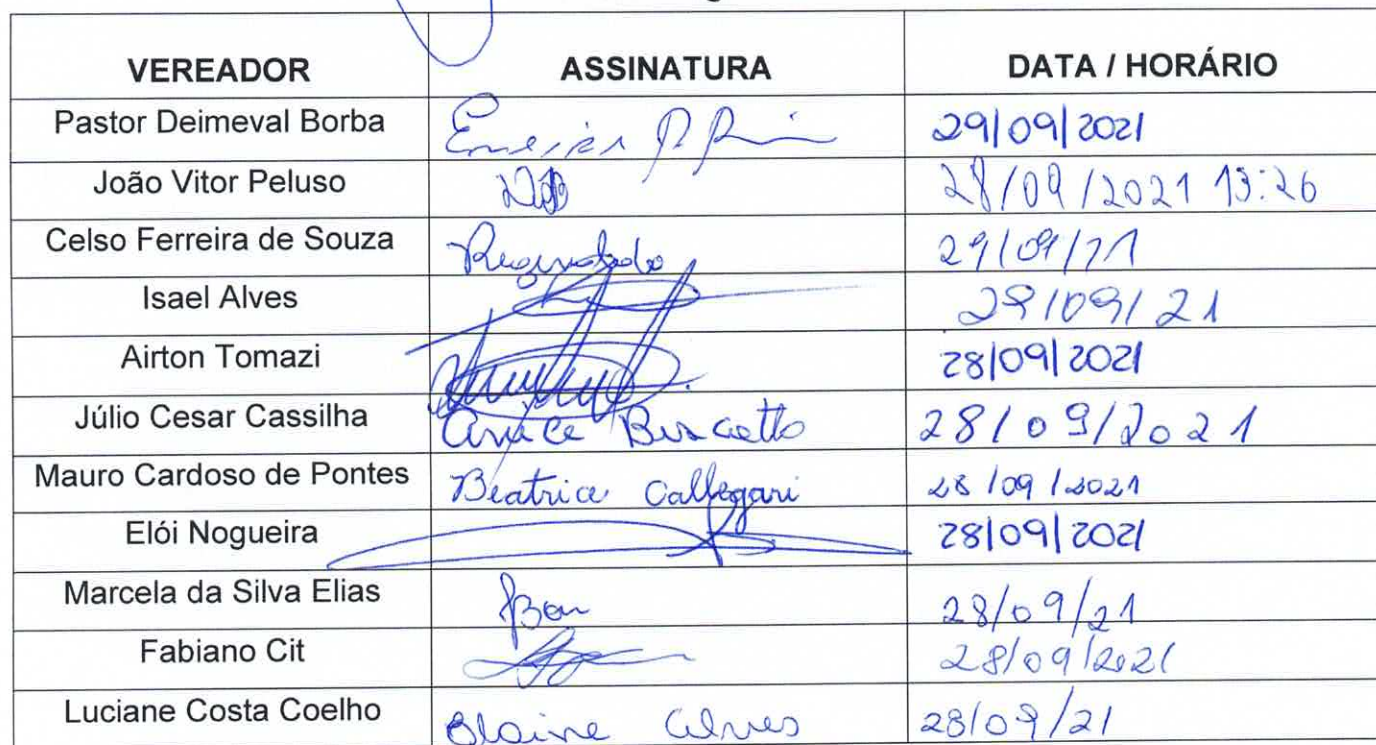 VEREADOR ASSINATURA DATA / HORÁRIO
Pastor Deimeval Borba 29/09/2021
João Vitor Peluso 28/09/2021 13:26
Celso Ferreira de Souza Reginaldo 29/09/21
Isael Alves 28/09/21
Airton Tomazi 28/09/2021
Júlio Cesar Cassilha 28/09/2021
Mauro Cardoso de Pontes Beatrice Callegari 28/09/2021
Elói Nogueira 28/09/2021
Marcela da Silva Elias 28/09/21
Fabiano Cit 28/09/2021
Luciane Costa Coelho Elaine Alves 28/09/21